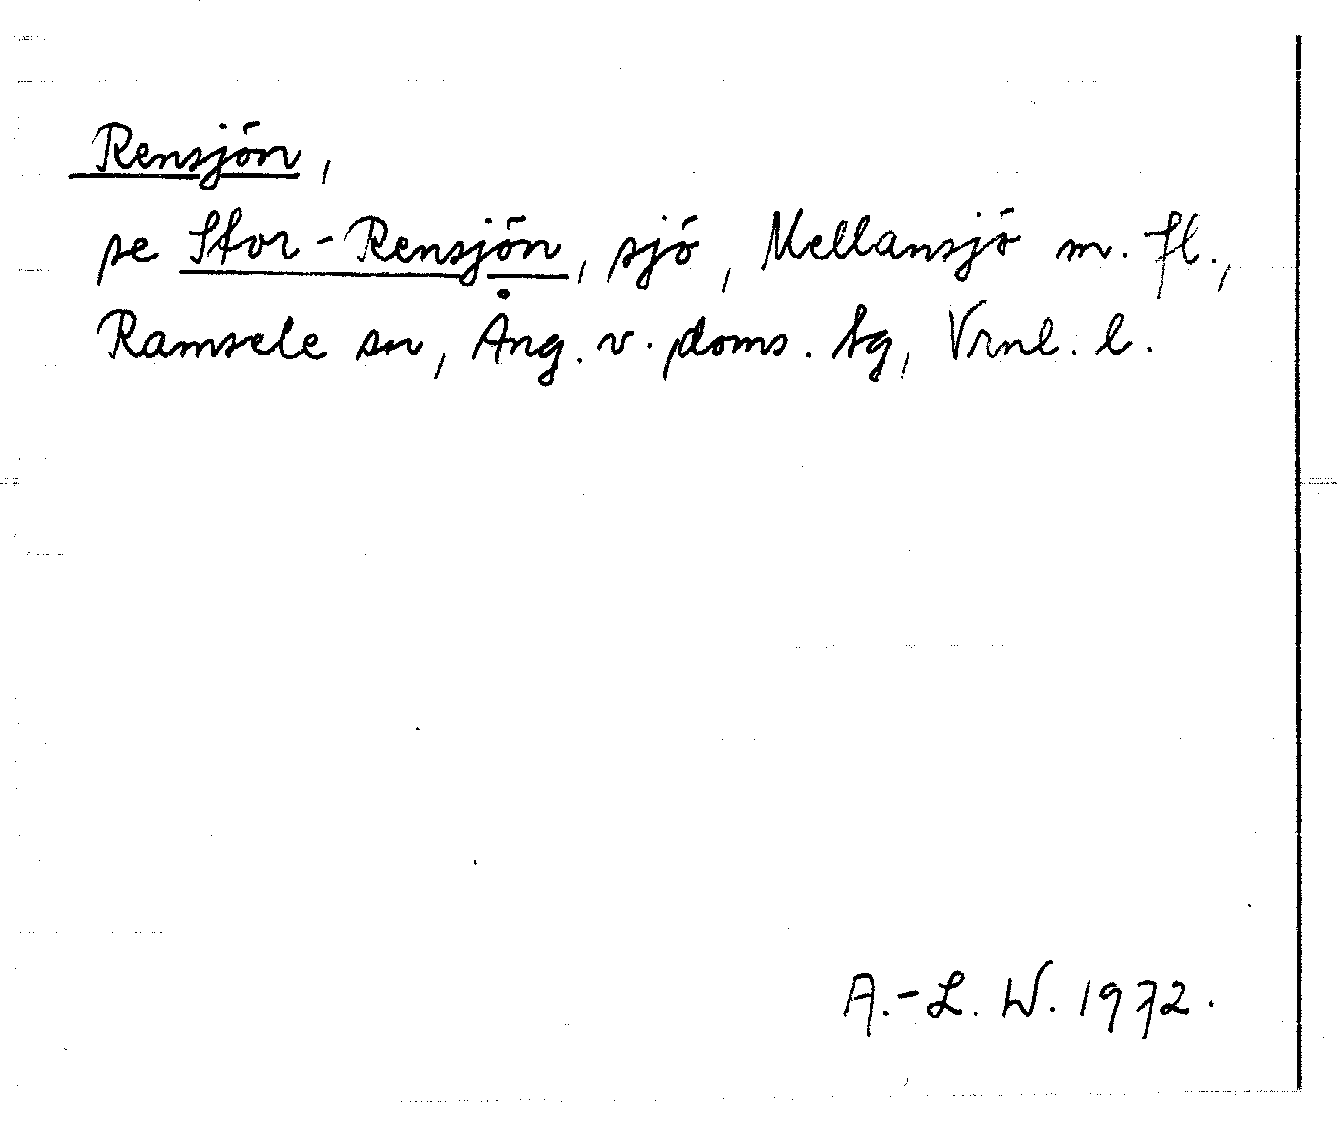 Rensjön,
se Stor-Rensjön, sjö, Mellansjö m. fl.,
Ramsele sn, Ång. v. doms. tg, Vrnl. l.
A.-L. W. 1972.